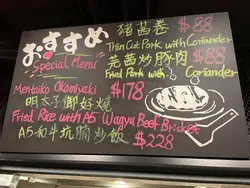 おすすめ
Special Menu
豬茜卷 $88
Thin Cut Pork with Coriander
芫茜炒豚肉 $88
Fried Pork with Coriander
Mentaiko Okoniyaki
明太子御好燒 $178
Fried Rice with A5 Wagyu Beef Brisket
A5和牛坑腩炒飯 $228